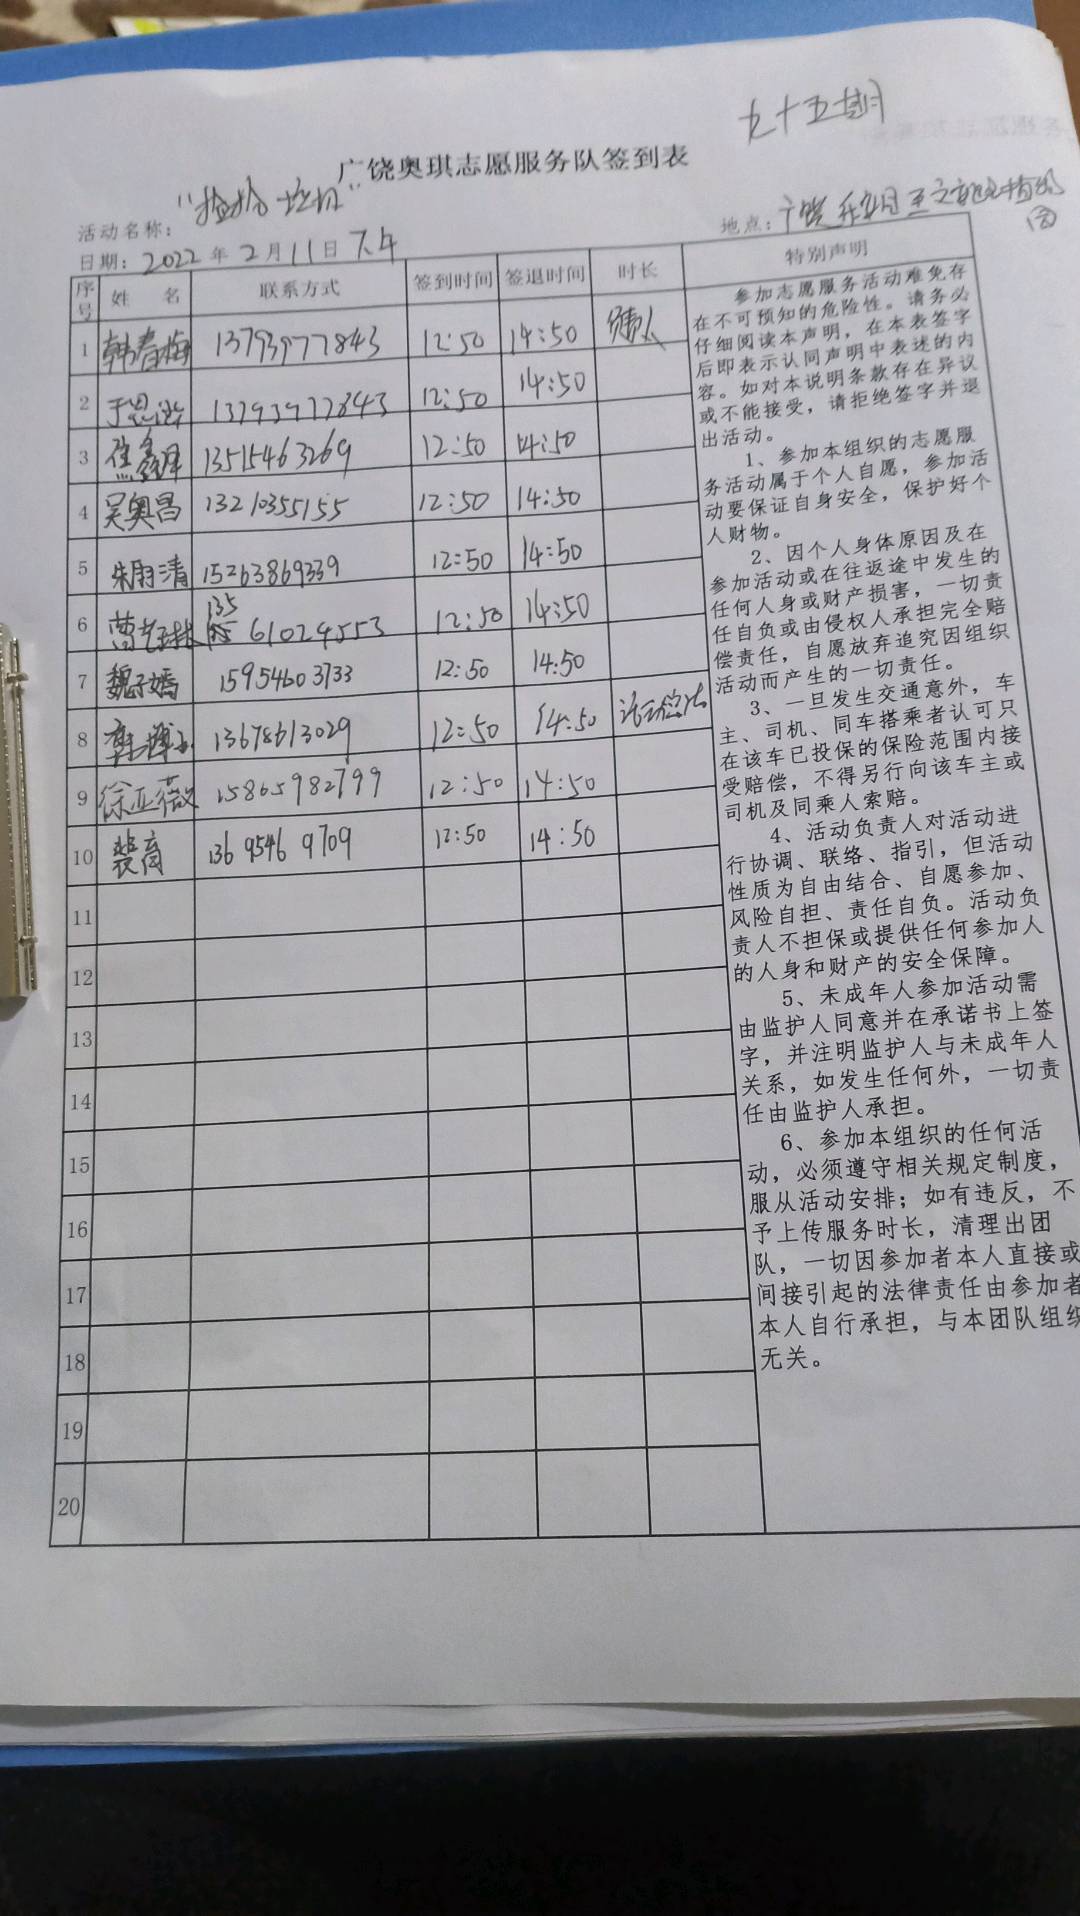 九十五期
广饶奥琪志愿服务队签到表
活动名称：“捡拾垃圾”
地点：广饶
日期：2022年2月11日下午
序号 姓 名 联系方式 签到时间 签退时间 时长 特别声明
1 韩春梅 13793977843 12:50 14:50 负责人
2 13793977843 12:50 14:50
3 焦鑫泽 13515463269 12:50 14:50
4 吴奥昌 13210355155 12:50 14:50
5 朱玥清 15263869339 12:50 14:50
6 135 61024553 12:50 14:50
7 魏子嫣 15954603733 12:50 14:50
8 13678613029 12:50 14:50 活动总结
9 徐亚薇 15865982799 12:50 14:50
10 裴育 136 9546 9709 12:50 14:50
11
12
13
14
15
16
17
18
19
20
参加志愿服务活动难免存
在不可预知的危险性。请务必
仔细阅读本声明，在本表签字
后即表示认同声明中表述的内
容。如对本说明条款存在异议
或不能接受，请拒绝签字并退
出活动。
1、参加本组织的志愿服
务活动属于个人自愿，参加活
动要保证自身安全，保护好个
人财物。
2、因个人身体原因及在
参加活动或在往返途中发生的
任何人身或财产损害，一切责
任自负或由侵权人承担完全赔
偿责任，自愿放弃追究因组织
活动而产生的一切责任。
3、一旦发生交通意外，车
主、司机、同车搭乘者认可只
在该车已投保的保险范围内接
受赔偿，不得另行向该车主或
司机及同乘人索赔。
4、活动负责人对活动进
行协调、联络、指引，但活动
性质为自由结合、自愿参加、
风险自担、责任自负。活动负
责人不担保或提供任何参加人
的人身和财产的安全保障。
5、未成年人参加活动需
由监护人同意并在承诺书上签
字，并注明监护人与未成年人
关系，如发生任何外，一切责
任由监护人承担。
6、参加本组织的任何活
动，必须遵守相关规定制度，
服从活动安排；如有违反，不
予上传服务时长，清理出团
队，一切因参加者本人直接或
间接引起的法律责任由参加者
本人自行承担，与本团队组织
无关。